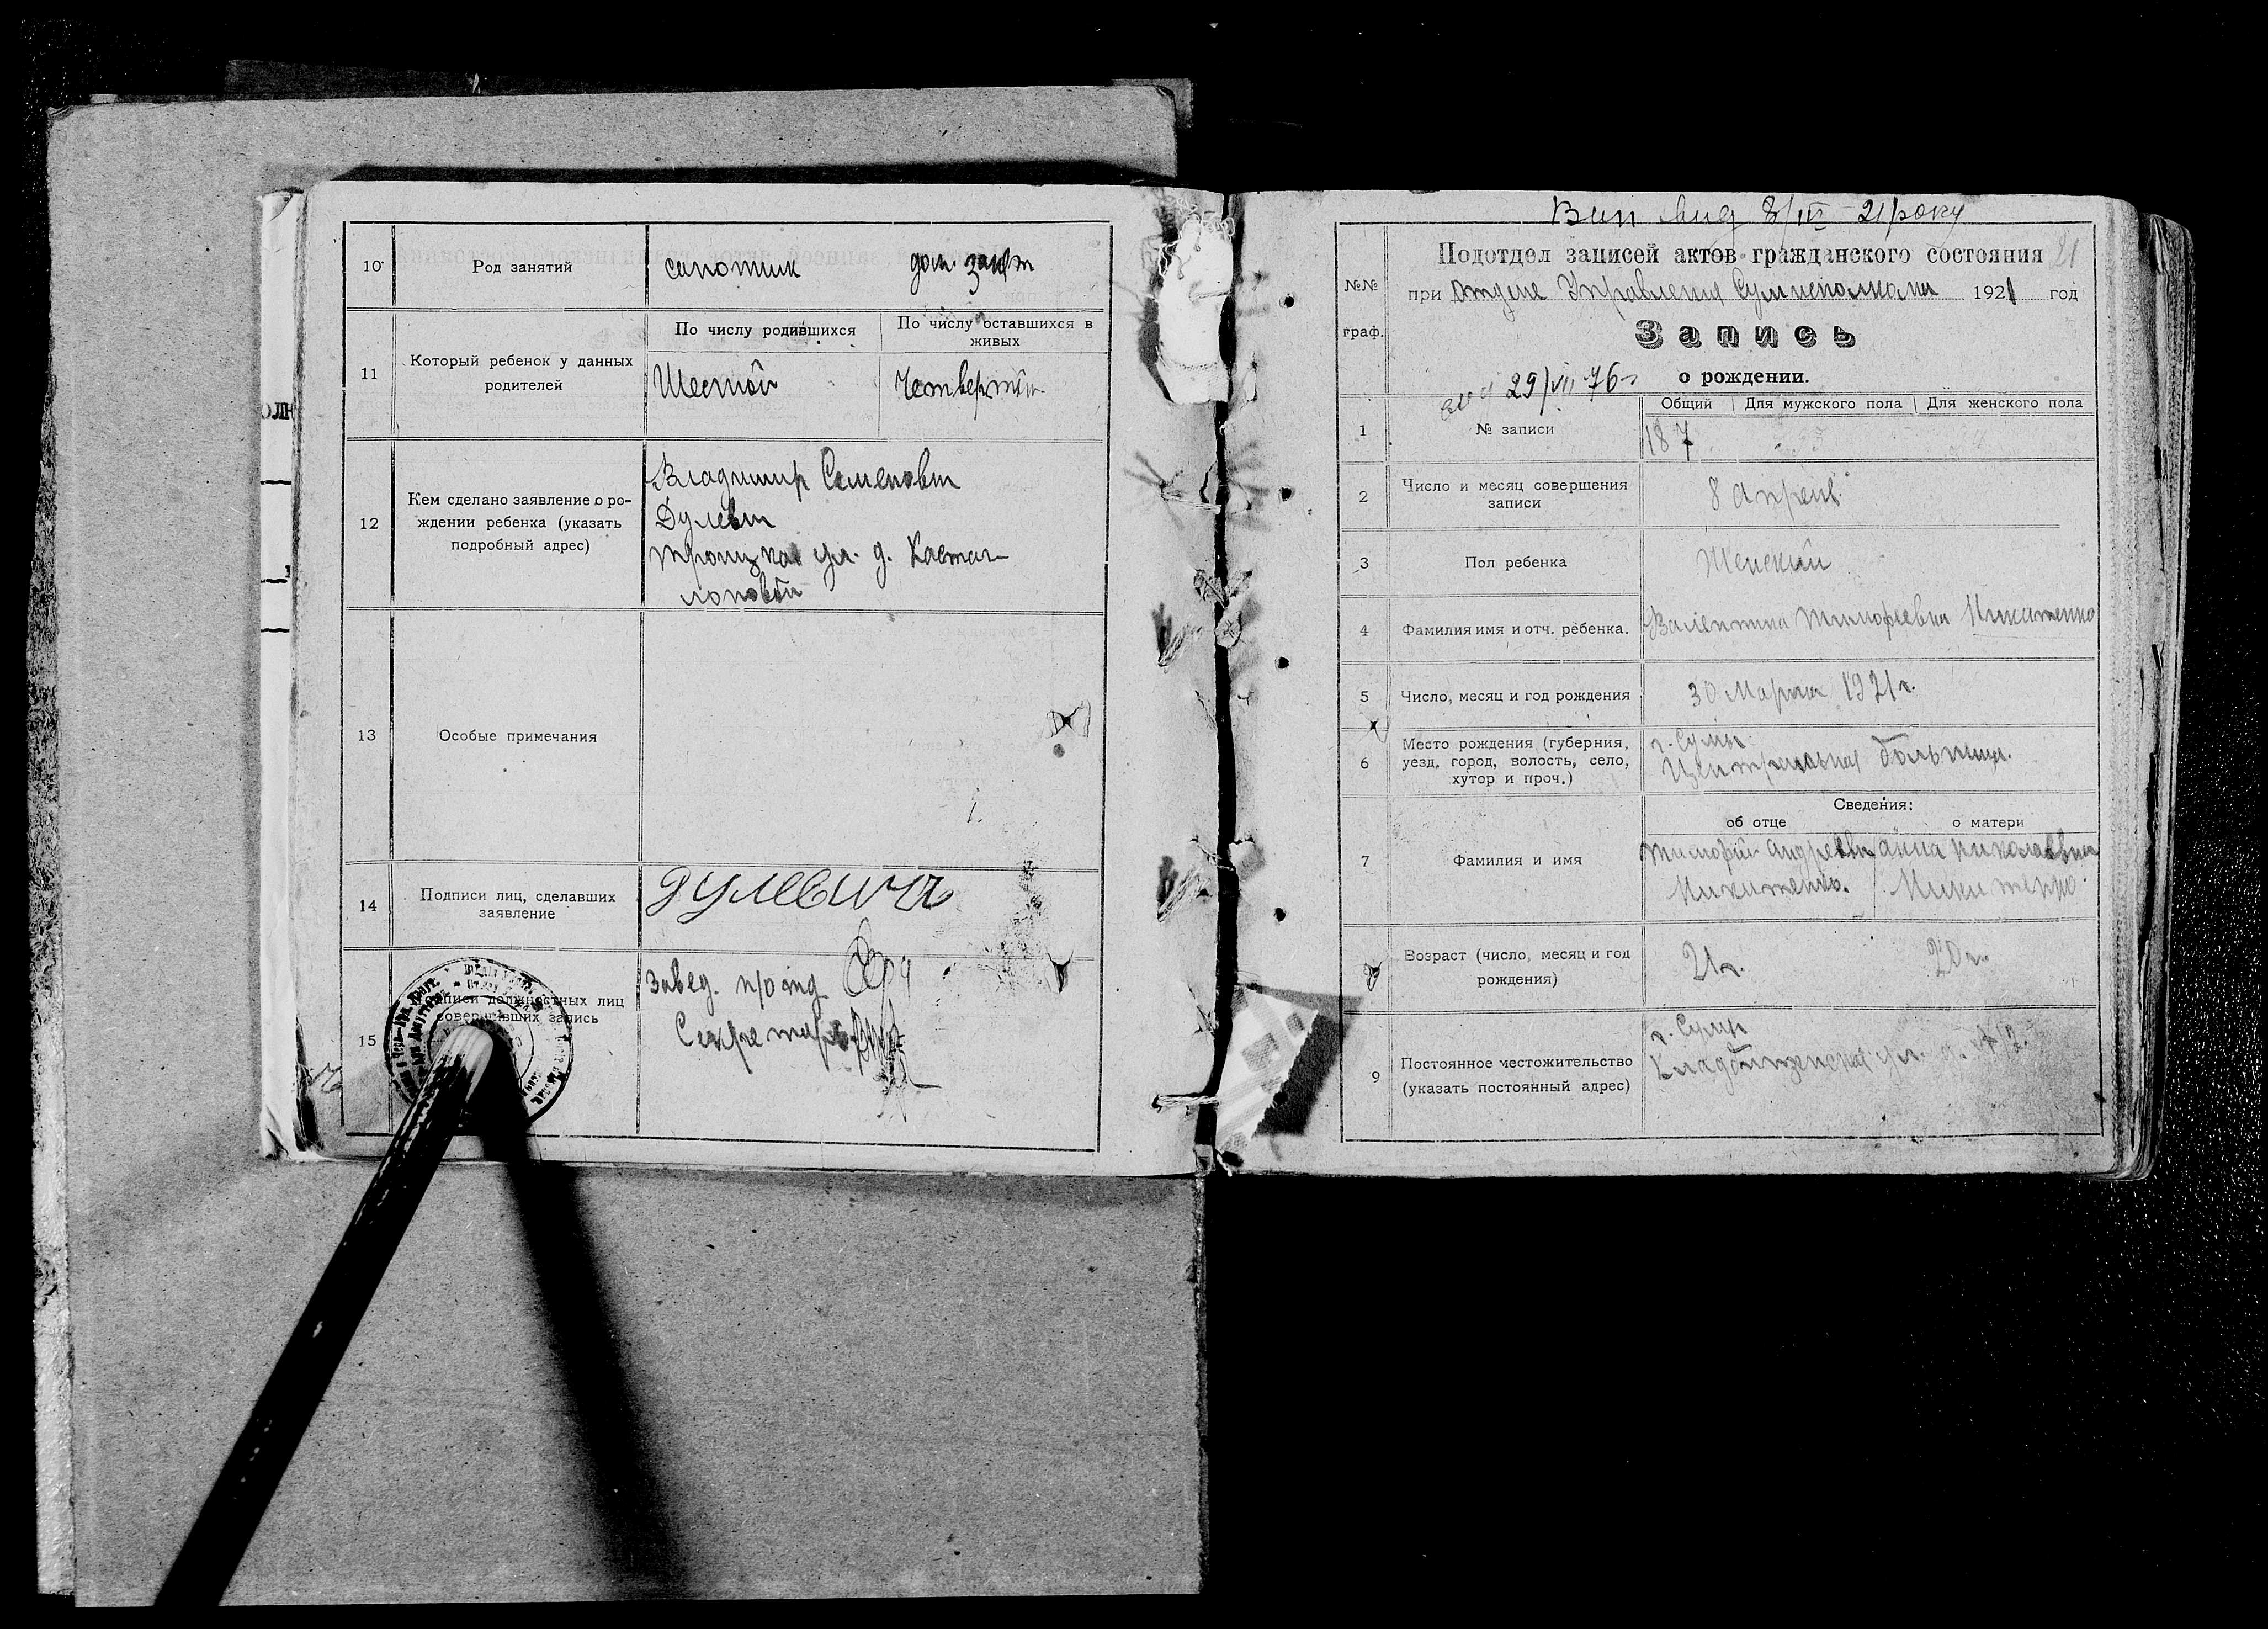 10
Род занятий
сапожник
дом. занят
11
Который ребенок у данных
родителей
По числу родившихся
По числу оставшихся в
живых
Шестой
Четвертый
12
Кем сделано заявление о ро-
ждении ребенка (указать
подробный адрес)
Владимир Семенович
Дулевич
Троицкая ул. д.
13
Особые примечания
14
Подписи лиц, сделавших
заявление
Дулевичъ
15
должностных лиц
совершивших запись
Завед. п/отд
Секретарь
8/IV 21 року
№№
граф.
Подотдел записей актов гражданского состояния
21
при Отделе Управления Сумисполкома 1921 год
Запись
о рождении.
29/VII 76
1
№ записи
Общий
Для мужского пола
Для женского пола
187
2
Число и месяц совершения
записи
8 апреля
3
Пол ребенка
Женский
4
Фамилия имя и отч. ребенка.
Валентина Тимофеевна Микитенко
5
Число, месяц и год рождения
30 Марта 1921 г.
6
Место рождения (губерния,
уезд, город, волость, село,
хутор и проч.)
г. Сумы
Центральная больница.
7
Фамилия и имя
Сведения:
об отце
о матери
Тимофей Андреевич
Микитенко.
Анна Николаевна
Микитенко.
Возраст (число, месяц и год
рождения)
21 г.
20 г.
9
Постоянное местожительство
(указать постоянный адрес)
г. Сумы
Кладбищенская ул. д.